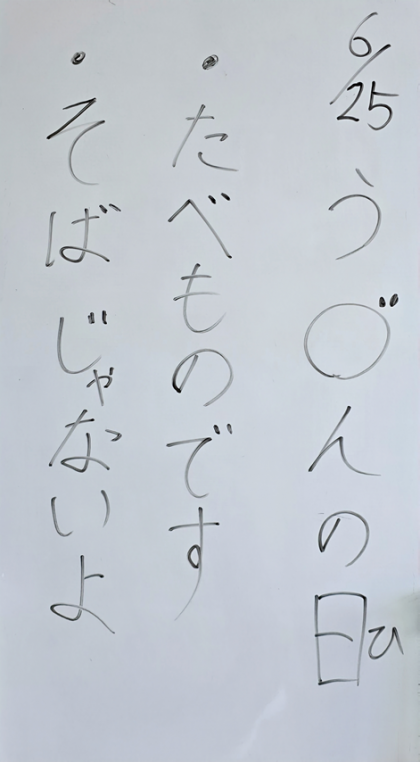 6/25 う〇゛んの日ひ
・たべものです
・そばじゃないよ